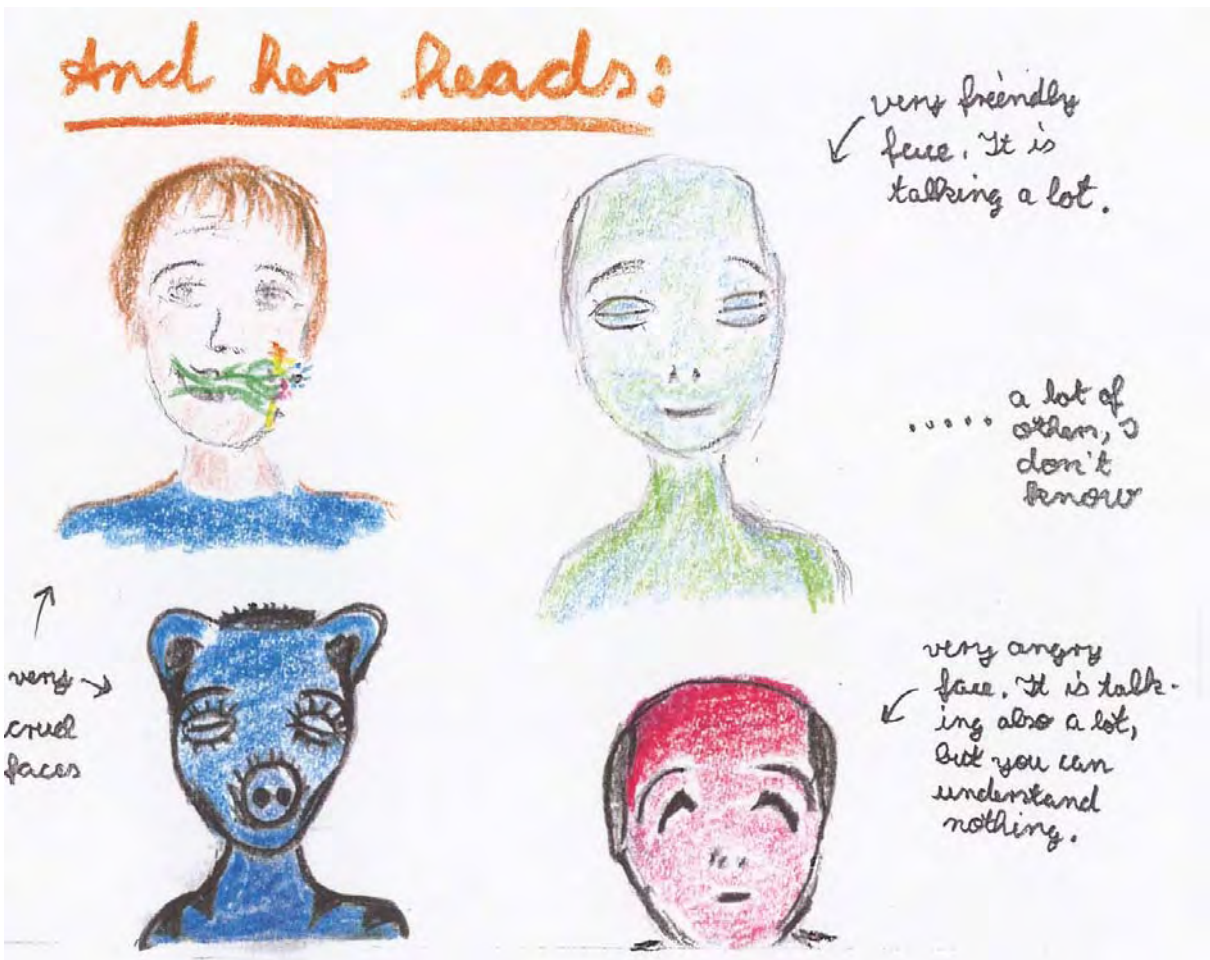 And her heads:
very friendly
face. It is
talking a lot.
..... a lot of
others, I
don't
know
very
cruel
faces
very angry
face. It is talk-
ing also a lot,
but you can
understand
nothing.